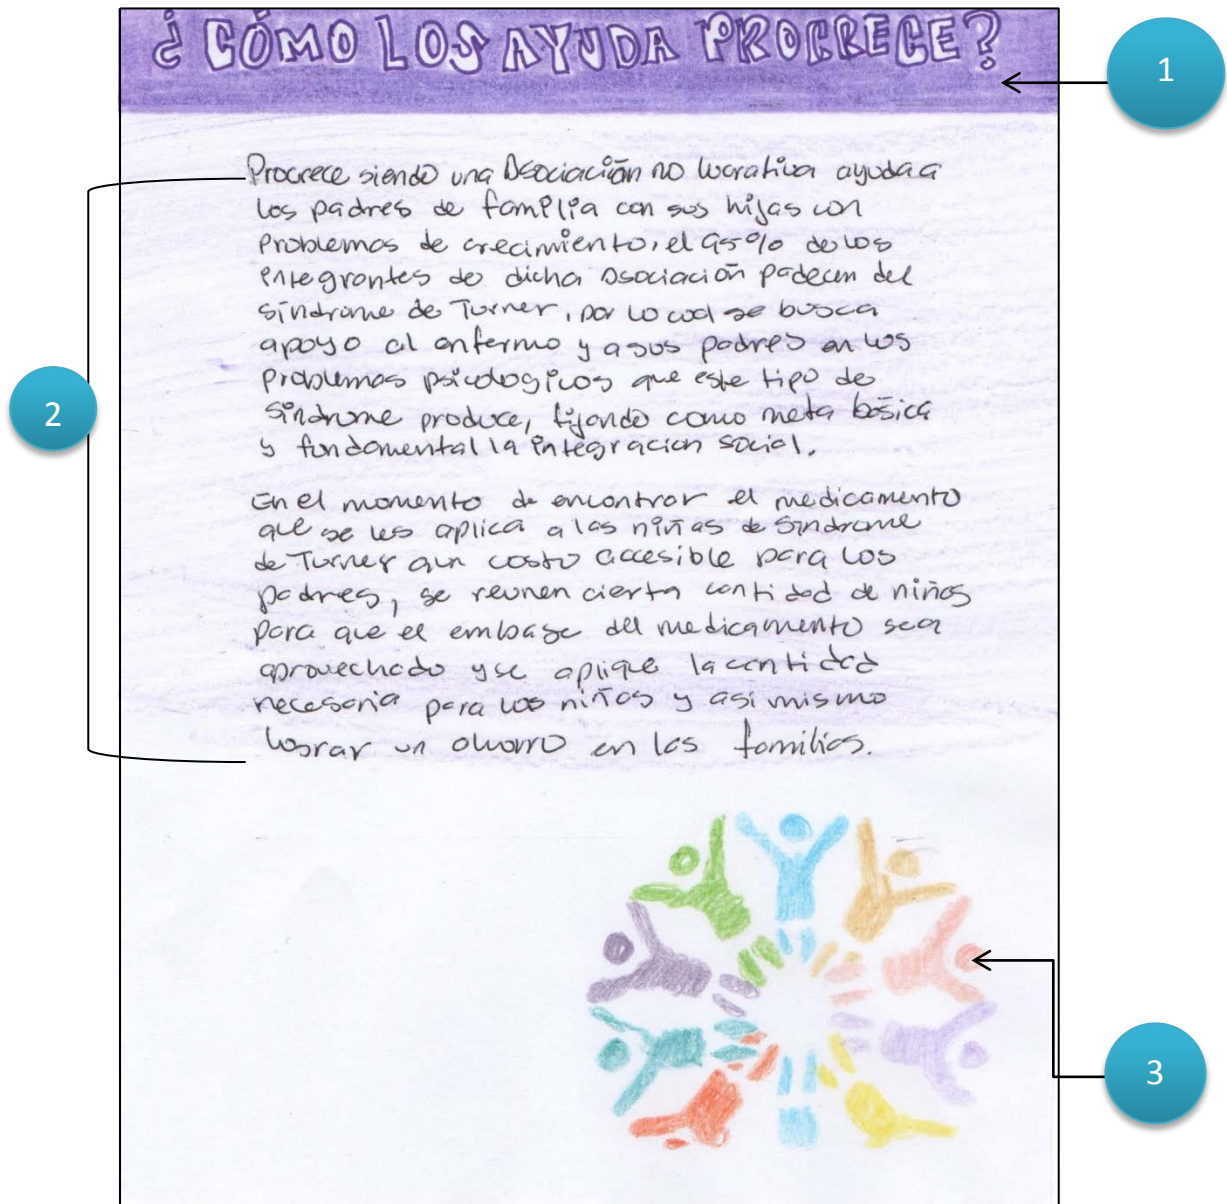 ¿CÓMO LOS AYUDA PROCRECE?
1
Procrece siendo una Asociación no lucrativa ayuda a
los padres de familia con sus hijas con
problemas de crecimiento, el 95% de los
integrantes de dicha Asociación padecen del
síndrome de Turner, por lo cual se busca
apoyo al enfermo y a sus padres en los
problemas psicologicos que este tipo de
síndrome produce, fijando como meta básica
y fundamental la integracion social.
2
En el momento de encontrar el medicamento
que se les aplica a las niñas de síndrome
de Turner a un costo accesible para los
padres, se reunen cierta cantidad de niños
para que el embase del medicamento sea
aprovechado y se aplique la cantidad
necesaria para los niños y asi mismo
lograr un ahorro en las familias.
3